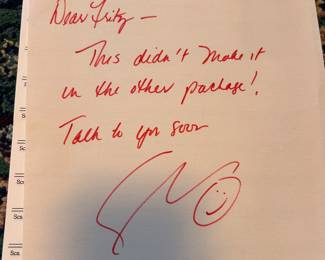 Dear Fritz —
This didn't make it
in the other package!
Talk to you soon
Sca
Sca
Sca